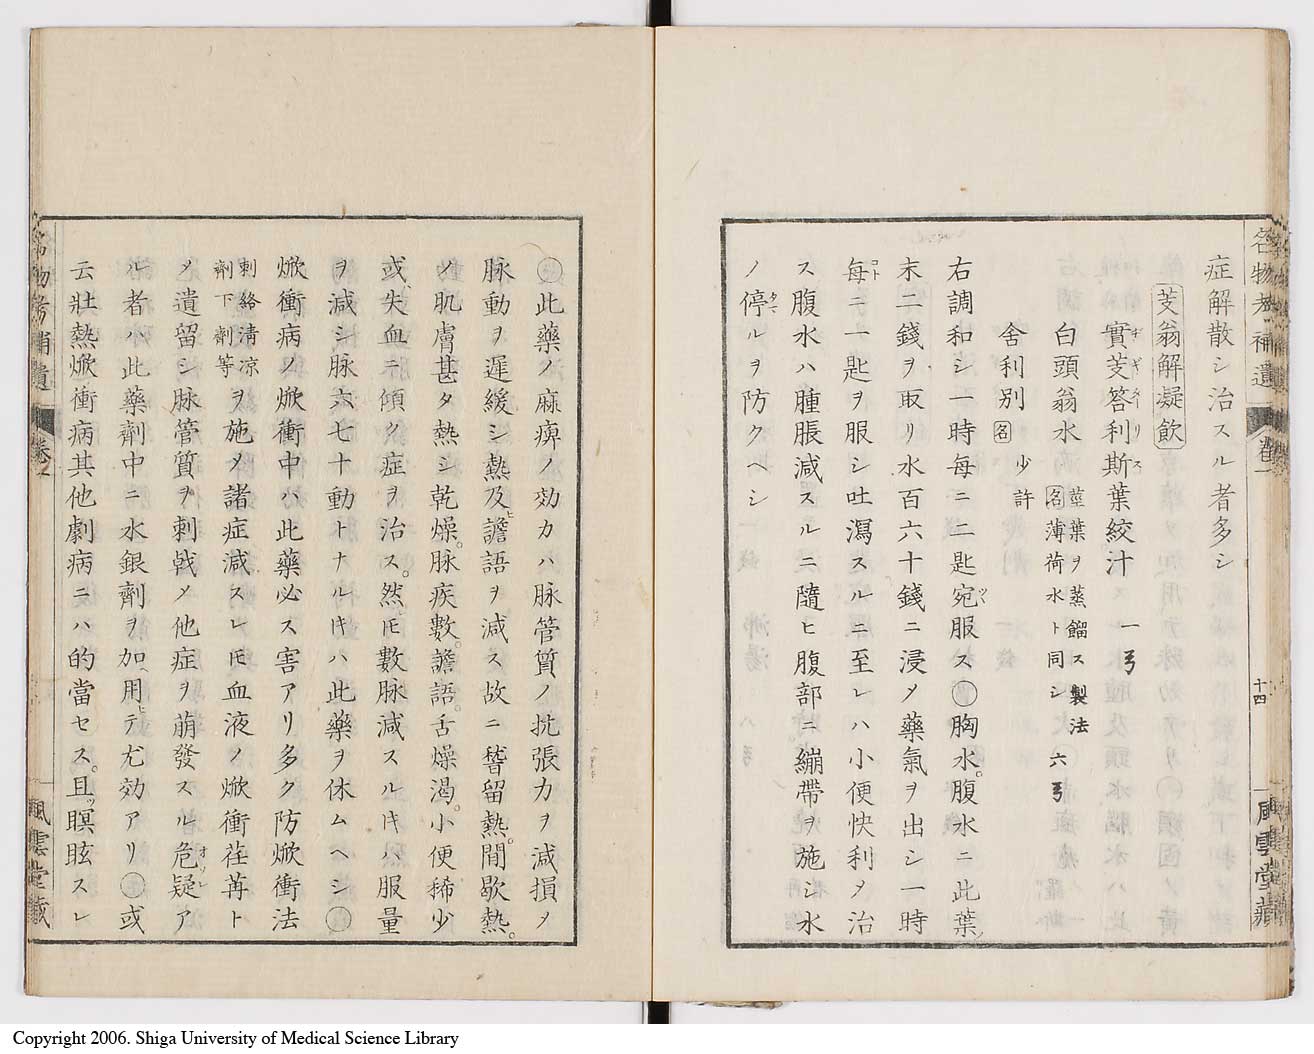 名物考補遺 卷一 十四 風雲堂藏
症解散シ治スル者多シ
芰翁解凝飲
實芰答利斯葉絞汁 一弓
白頭翁水 莖葉ヲ蒸餾ス製法名薄荷水ト同シ 六弓
舍利別名 少許
右調和シ一時每ニ二匙宛服ス○胸水。腹水ニ此葉
末二錢ヲ取リ水百六十錢ニ浸メ藥氣ヲ出シ一時
每ニ一匙ヲ服シ吐瀉スルニ至レハ小便快利メ治
ス腹水ハ腫脹減スルニ隨ヒ腹部ニ繃帶ヲ施シ水
ノ停ルヲ防クヘシ
○此藥ノ麻痺ノ効力ハ脉管質ノ抗張力ヲ減損メ
脉動ヲ遲緩シ熱及譫語ヲ減ス故ニ瞀留熱。間歇熱。
ノ肌膚甚タ熱シ乾燥。脉疾數。譫語。舌燥渴。小便稀少
或失血ニ傾ク症ヲ治ス。然𪜈數脉減スルキハ服量
ヲ減シ脉六七十動トナルキハ此藥ヲ休ムヘシ○
焮衝病ノ焮衝中ハ此藥必ス害アリ多ク防焮衝法
刺絡清凉劑下劑等ヲ施メ諸症減スレ𪜈血液ノ焮衝荏苒ト
メ遺留シ脉管質ヲ刺戟メ他症ヲ萠發スル危疑ア
ル者ハ此藥劑中ニ水銀劑ヲ加用テ尤効アリ○或
云壯熱焮衝病其他劇病ニハ的當セス。且瞑眩スレ
名物考補遺 卷一 風雲堂藏
Copyright 2006. Shiga University of Medical Science Library